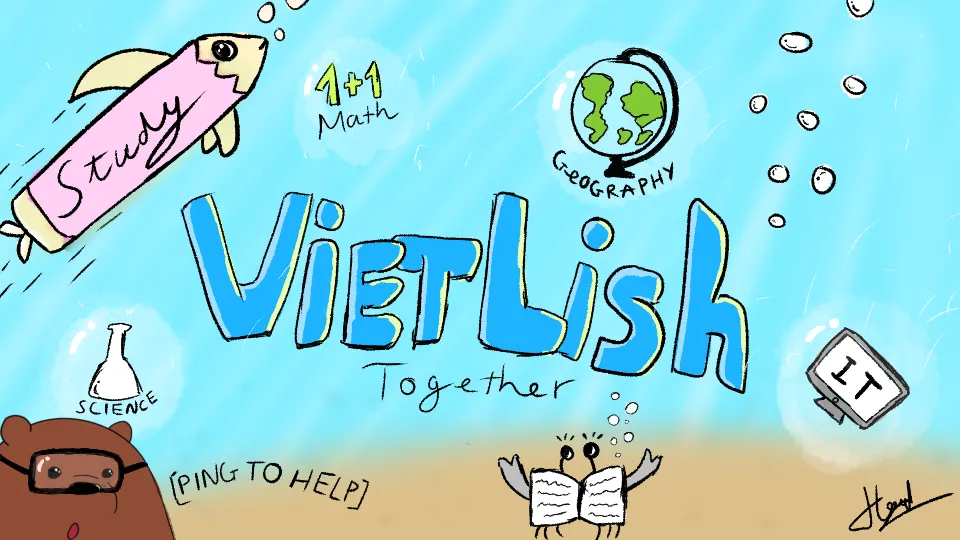 Study
1+1
Math
GEOGRAPHY
VIETLish
Together
SCIENCE
IT
[PING TO HELP]